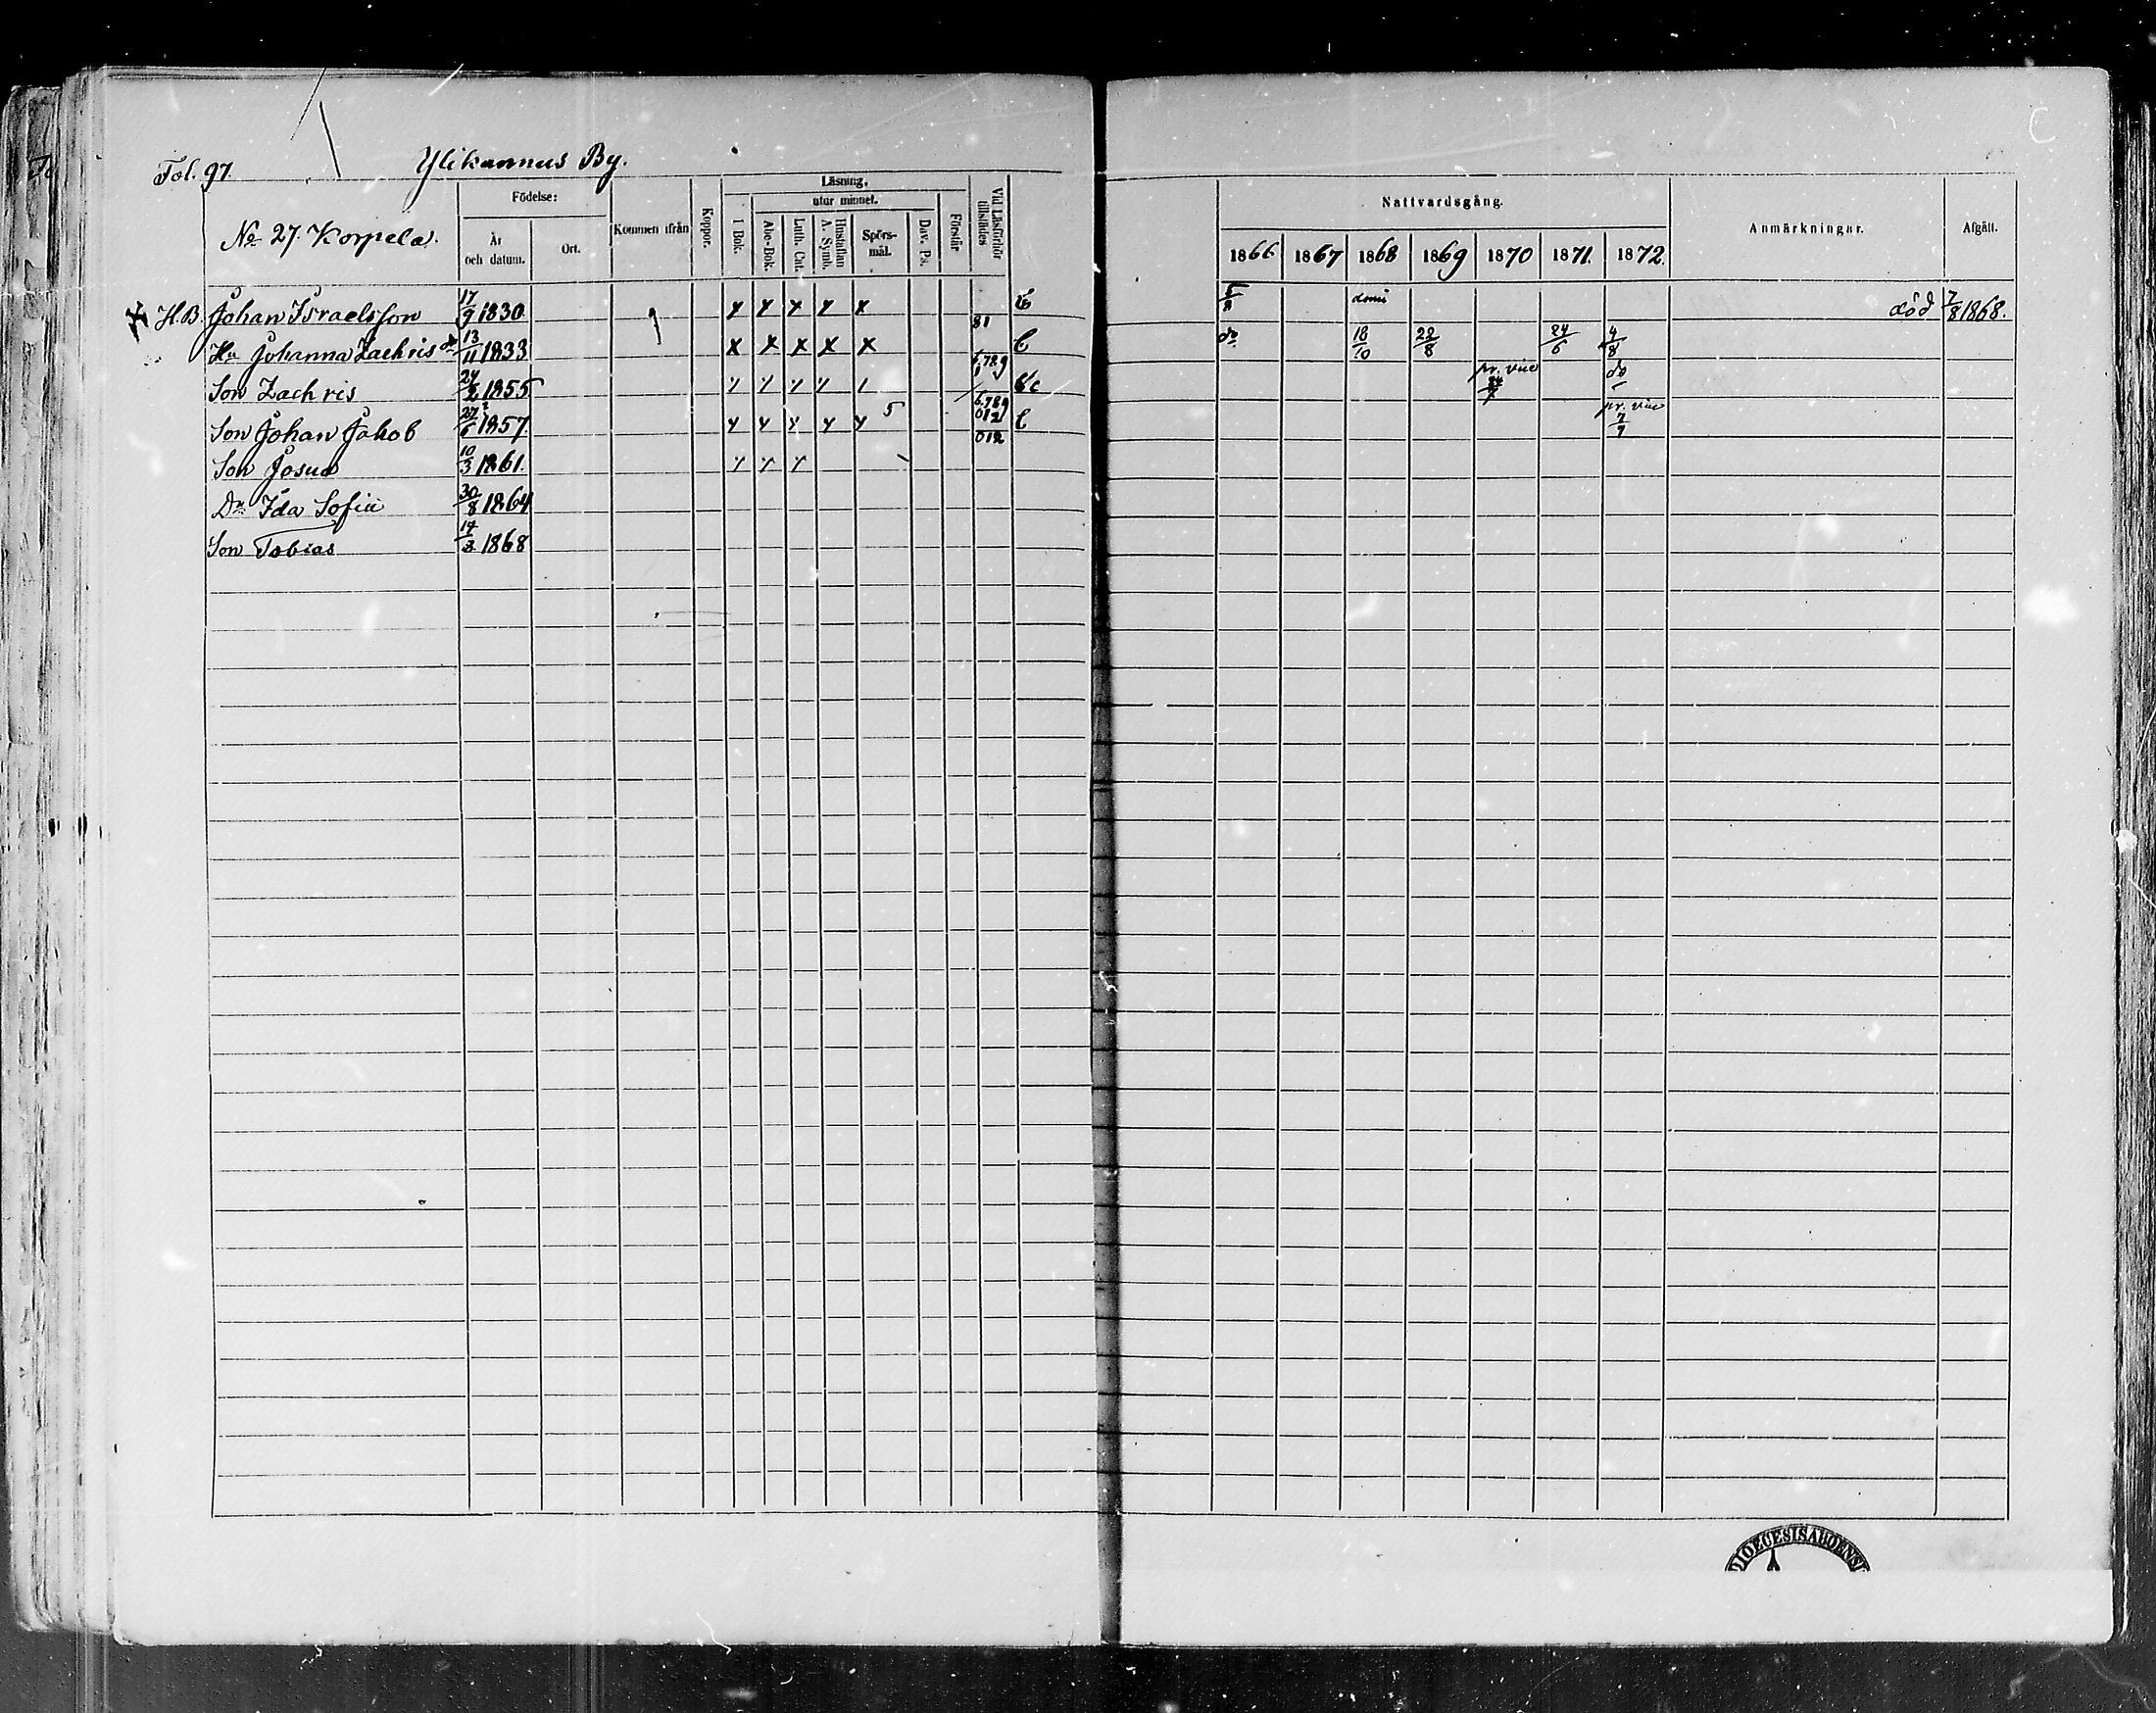 Fol. 97. Ylikannus By.
No 27. Korpela.
Födelse:
År och datum.
Ort.
Kommen ifrån
Koppor.
Läsning,
utur minnet.
I Bok.
Abc-Bok.
Luth. Cat.
Hustaflan A. Symb.
Spörs-mål.
Dav. Ps.
Förstår
Vid Läsförhör tillstädes
Nattvardsgång.
1866 1867 1868 1869 1870 1871. 1872.
Anmärkningar.
Afgått.
H.B. Johan Israelsson 17/9 1830 81 domi död 7/8 1868.
Hu Johanna Zachris dr 13/11 1833 do 18/10 22/8 24/6 4/8
Son Zachris 1855 pr. vice do
Son Johan Jakob 27/6 1857 5 012 pr. vice
Son Josua 10/3 1861.
Dr Ida Sofia 30/8 1864
Son Tobias 1868
DIOECESIS ABOENSI